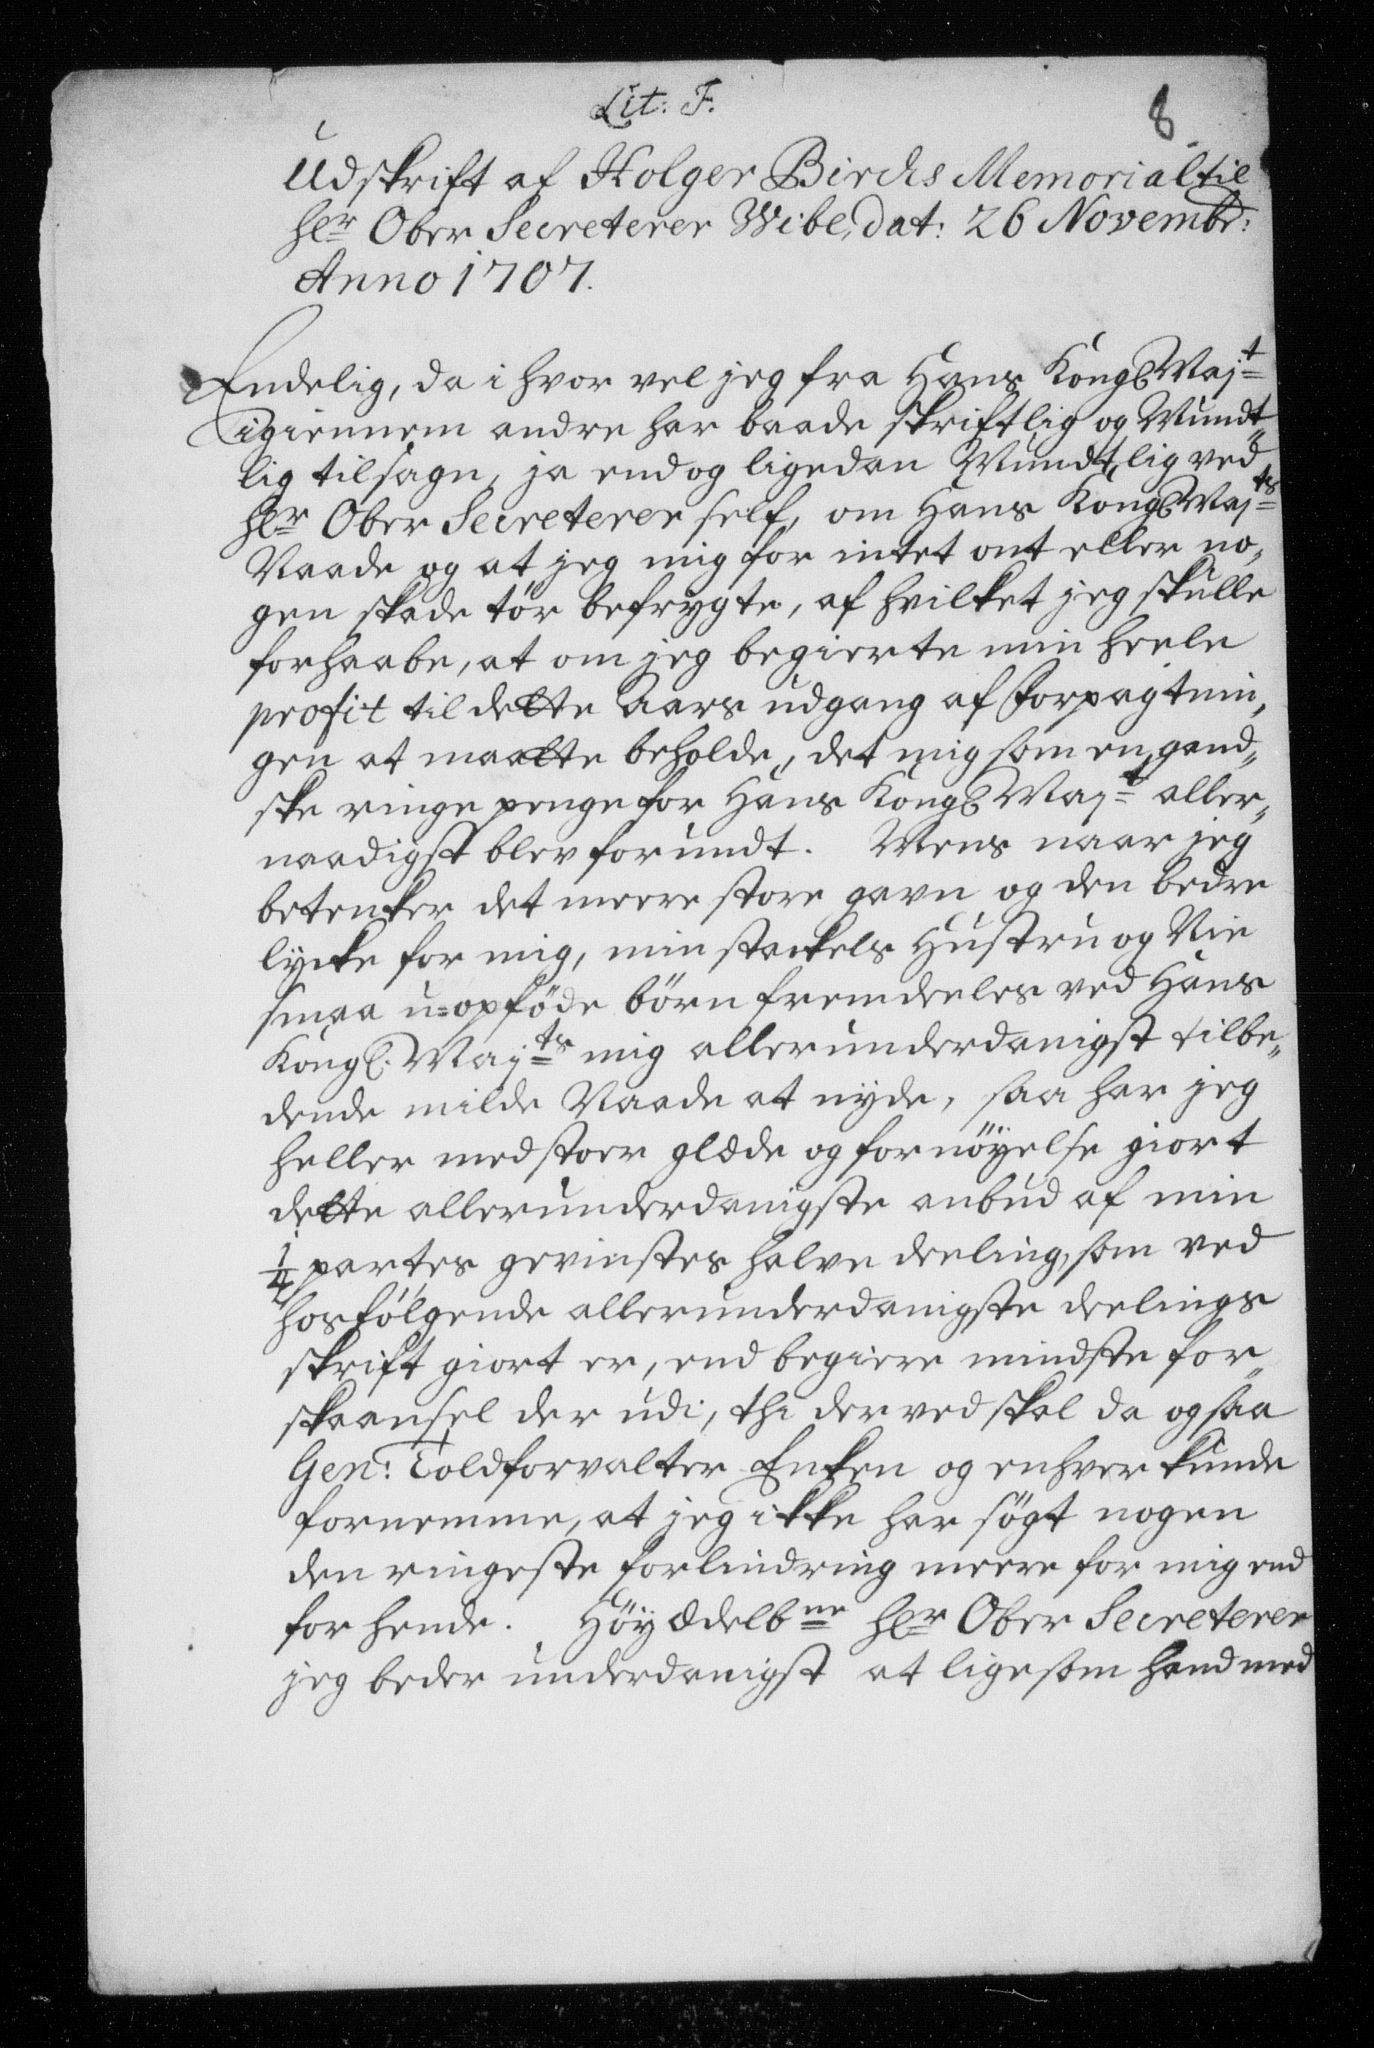 Lit: F.
8
Udskrift af Holger Birchs Memorial til
her Ober Secreterer Wibe, dat: 26 Novembr:
Anno 1707.
Endelig, da i hvor vel jeg fra Hans Kongl Majt
igiennem andre har baade skriftlig og Mundt„
lig tilsagn, ja endog ligedan Mundtlig ved
her Ober Secreterer self, om Hans Kongl Majts
Naade og at jeg mig for intet ont eller no„
gen skade tør befrygte, af hvilket jeg skulle
forhaabe, at om jeg begierte min heele
profit til dette Aars udgang af Forpagtnin„
gen at maatte beholde, det mig som en gand„
ske ringe penge for Hans Kongl Majt aller„
naadigst blev forundt. Mens naar jeg
betenker det meere store gavn og den bedre
lycke for mig, min stackels Hustru og Nie
smaa u=opføde børn fremdeeles ved Hans
Kongl. Majts mig allerunderdanigst tilbe„
dende milde Naade at nyde, saa har jeg
heller med stoer glæde og fornöyelse giort
dette allerunderdanigste anbud af min
1/4 partes gevinstes halve deeling, som ved
hosfølgende allerunderdanigste deelings
skrift giort er, end begiere mindste for„
skaansel der udi, thi derved skal da og saa
Gen: Toldforvalter Enken og enhver kunde
fornemme, at jeg ikke har søgt nogen
den ringeste forlindring meere for mig end
for hende. Høyædelbne her Ober Secreterer
jeg beder underdanigst at ligesom hand med